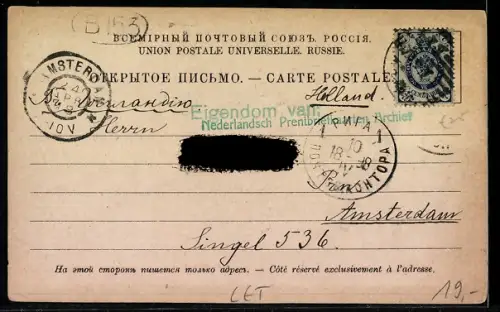 B 163
ВСЕМІРНЫЙ ПОЧТОВЫЙ СОЮЗЪ. РОССІЯ.
UNION POSTALE UNIVERSELLE. RUSSIE.
ОТКРЫТОЕ ПИСЬМО. — CARTE POSTALE
AMSTERDAM
10V
Въ Голландію
Holland.
Eigendom van
Nederlandsch Prentbriefkaarten Archief
Herrn
РИГА
10
ПОЧТ. КОНТОРА
in
Amsterdam
Singel 536.
На этой сторонѣ пишется только адресъ. — Côté réservé exclusivement à l'adresse.
LET
19,-